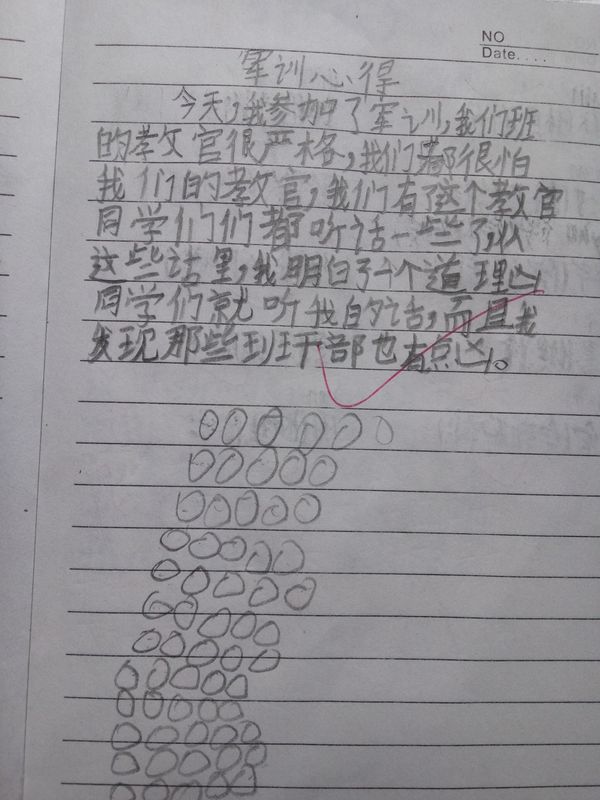 NO
Date....
军训心得
今天,我参加了军训,我们班
的教官很严格,我们都很怕
我们的教官,我们有了这个教官
同学们们都听话一些了,从
这些话里,我明白了一个道理凶
同学们就听我的话,而且我
发现那些班干部也有点凶。